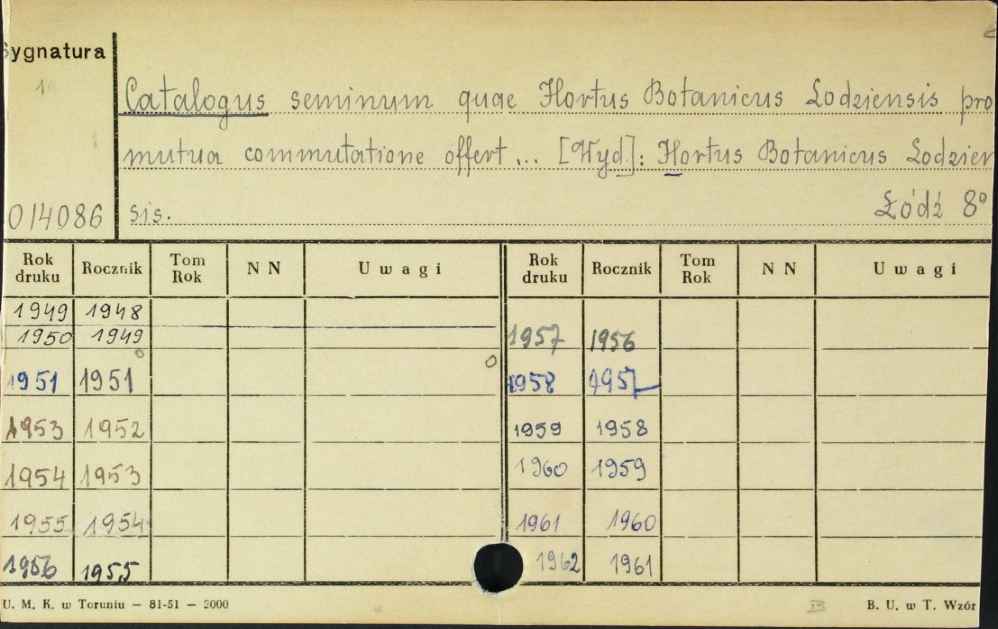 Sygnatura
Catalogus seminum quae Hortus Botanicus Lodziensis pro
mutua commutatione offert... [Wyd.]: Hortus Botanicus Lodzien
014086 sis. Łódź 8°
Rok druku Rocznik Tom Rok N N Uwagi Rok druku Rocznik Tom Rok N N Uwagi
1949 1948
1950 1949 1957 1956
1951 1951 1958 1957
1953 1952 1959 1958
1954 1953 1960 1959
1955 1954 1961 1960
1956 1955 1962 1961
U. M. K. w Toruniu — 81-51 — 2000 B. U. w T. Wzór